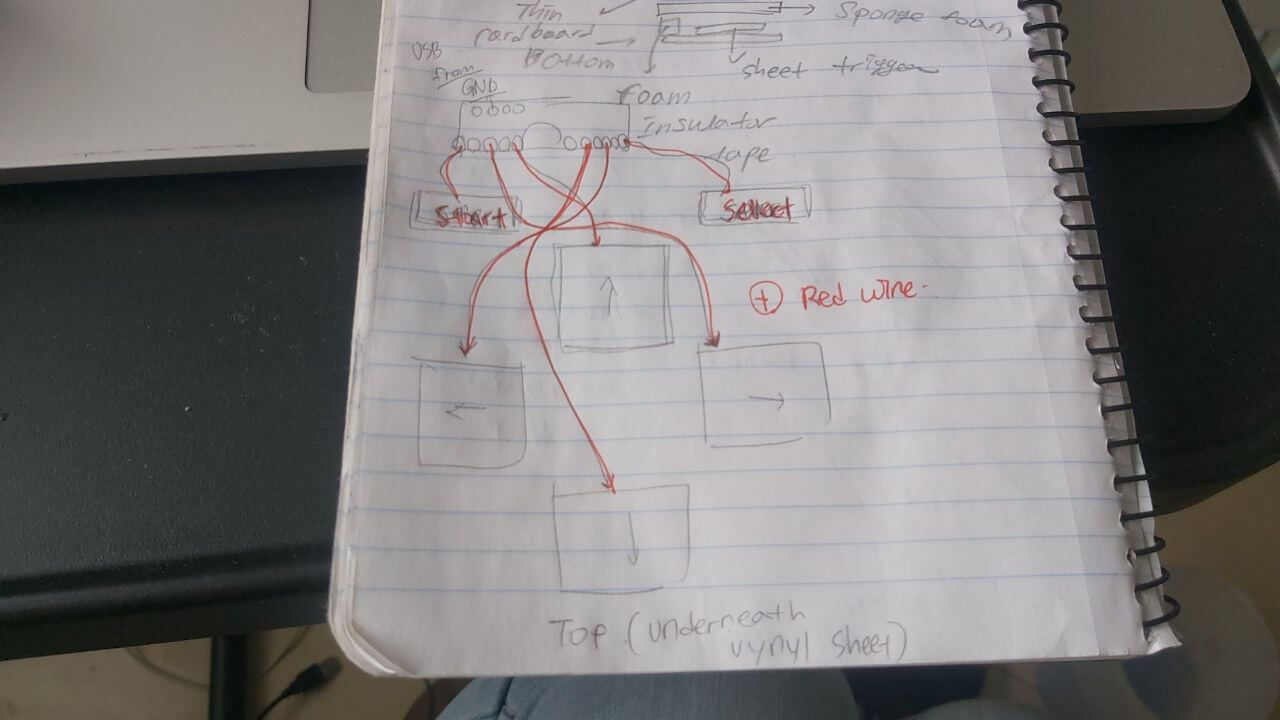 Thin
cardboard
Bottom
Sponge foam
sheet trigger
USB
from
GND
foam
Insulator
tape
Start
Select
↑
+ Red wire.
←
→
↓
Top (underneath
vynyl sheet)